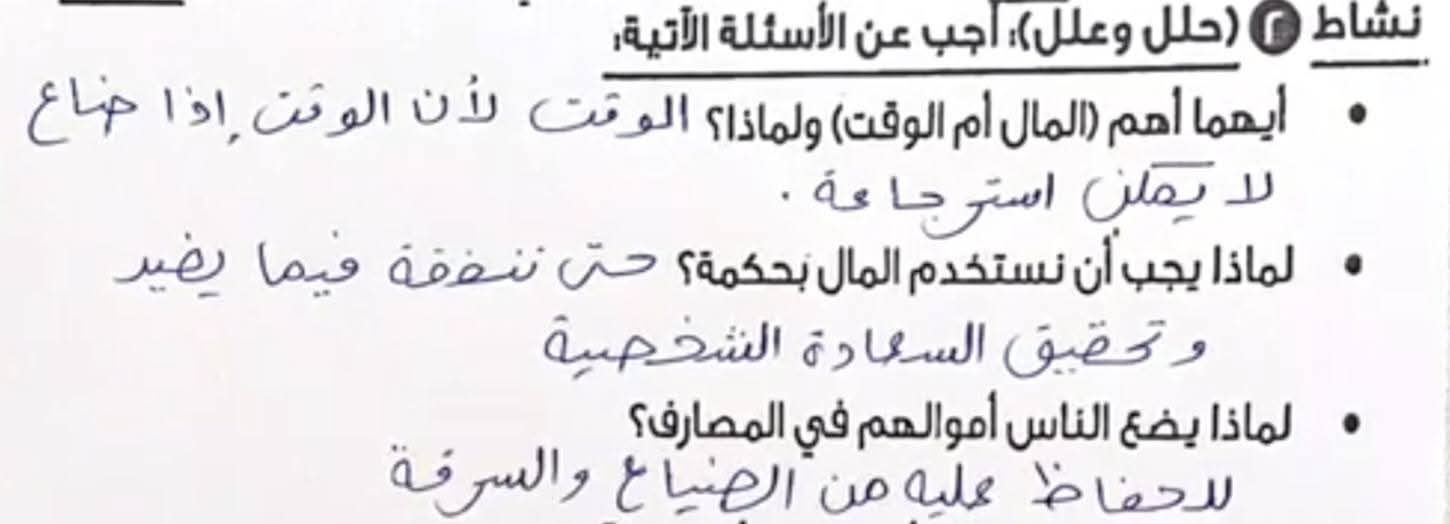 نشاط ٢ (حلل وعلل): أجب عن الأسئلة الآتية:
• أيهما أهم (المال أم الوقت) ولماذا؟ الوقت لأن الوقت إذا ضاع
لا يمكن استرجاعة .
• لماذا يجب أن نستخدم المال بحكمة؟ حتى ننفقة فيما يفيد
وتحقيق السعادة الشخصية
• لماذا يضع الناس أموالهم في المصارف؟
للحفاظ عليه من الضياع والسرقة